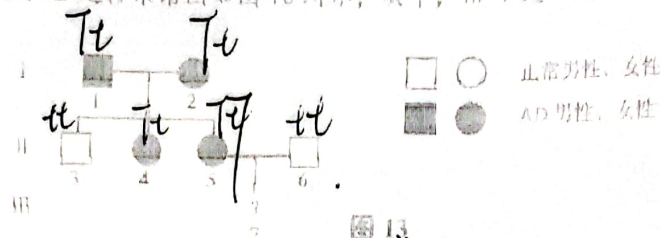 Tt Tt
I 正常男性、女性
1 2 AD男性、女性
tt Tt Tt tt
II
3 4 5 6
III ?
7 图 13